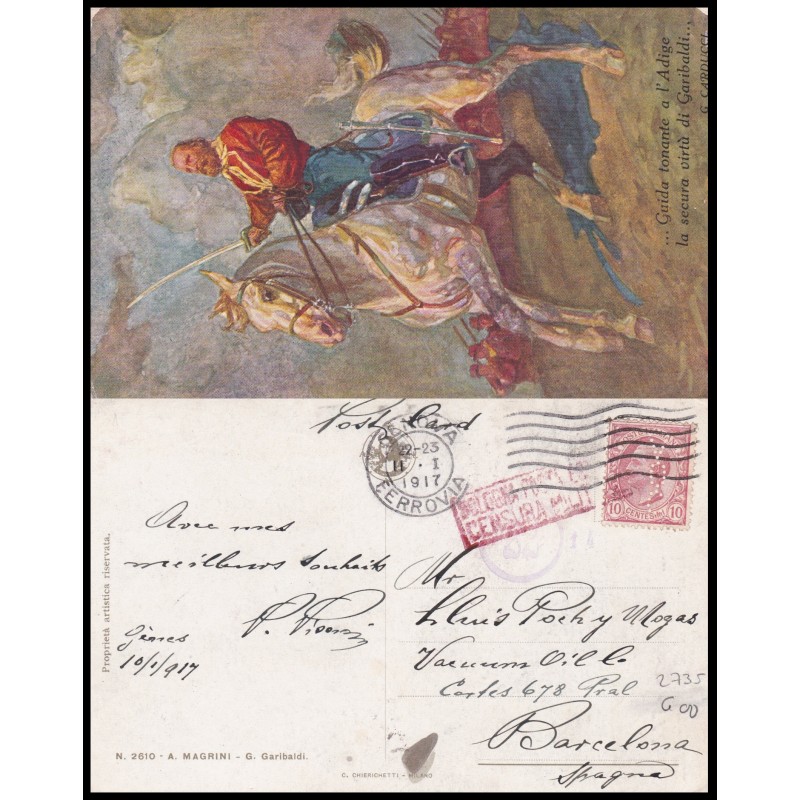 ... Guida tonante a l'Adige
la secura virtù di Garibaldi...
G. CARDUCCI
Post Card
GENOVA
22-23
11 · I
1917
FERROVIA
BOLOGNA POSTA
CENSURA MILIT
POSTE ITALIANE
10 CENTESIMI 10
Avec mes
meilleurs souhaits
Gênes
10/1/917
Mr
Lluis Poch y Mogas
Vacuum Oil Co
Cortes 678 Pral
Barcelona
Spagna
2735
600
Proprietà artistica riservata.
N. 2610 - A. MAGRINI - G. Garibaldi.
C. CHIERICHETTI - MILANO